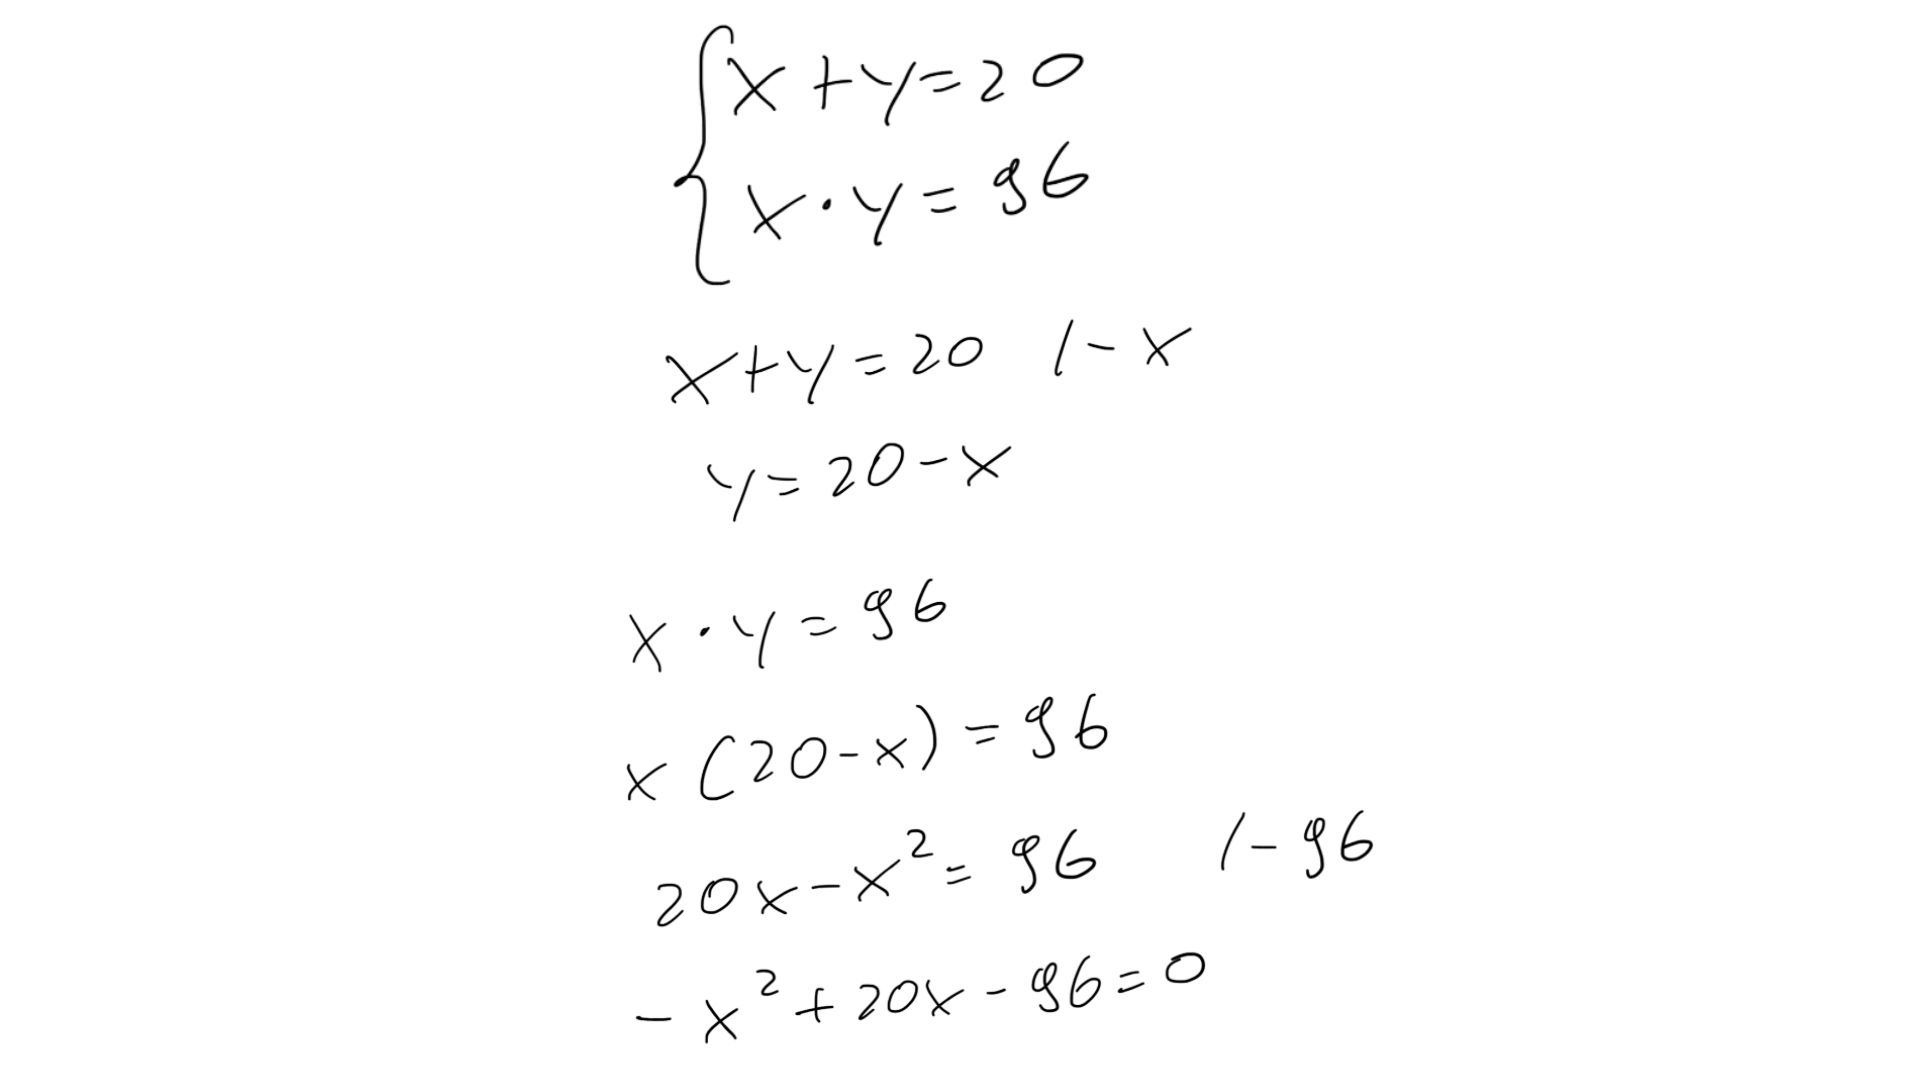 x+y=20
x·y=96
x+y=20 /-x
y=20-x
x·y=96
x(20-x)=96
20x-x²=96 /-96
-x²+20x-96=0